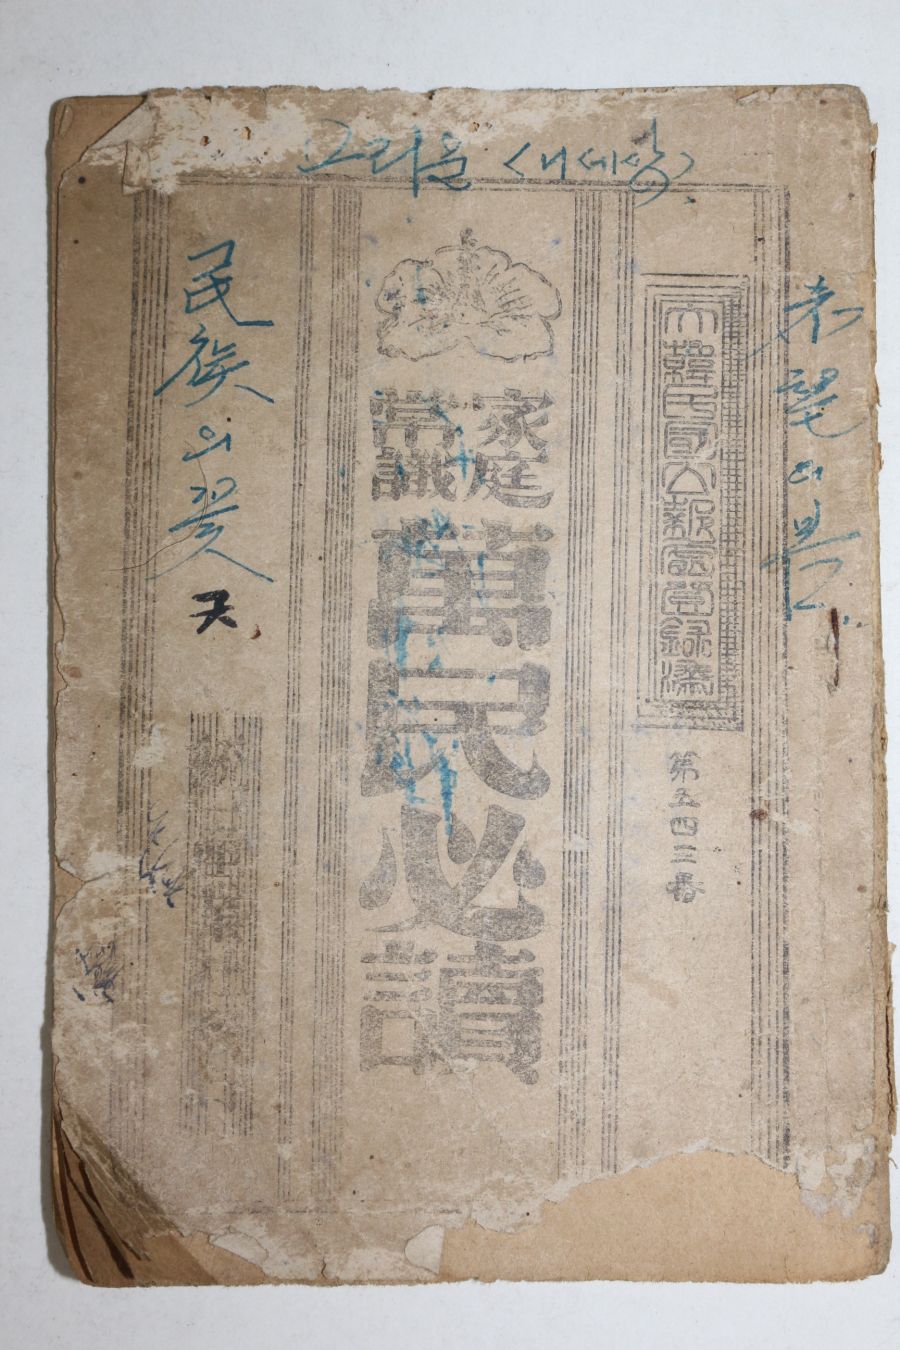 그리운 <내세상>
希望의봄
大韓民國公報處登録濟
第五四三番
家庭
常識
萬民必讀
民族의꽃
天